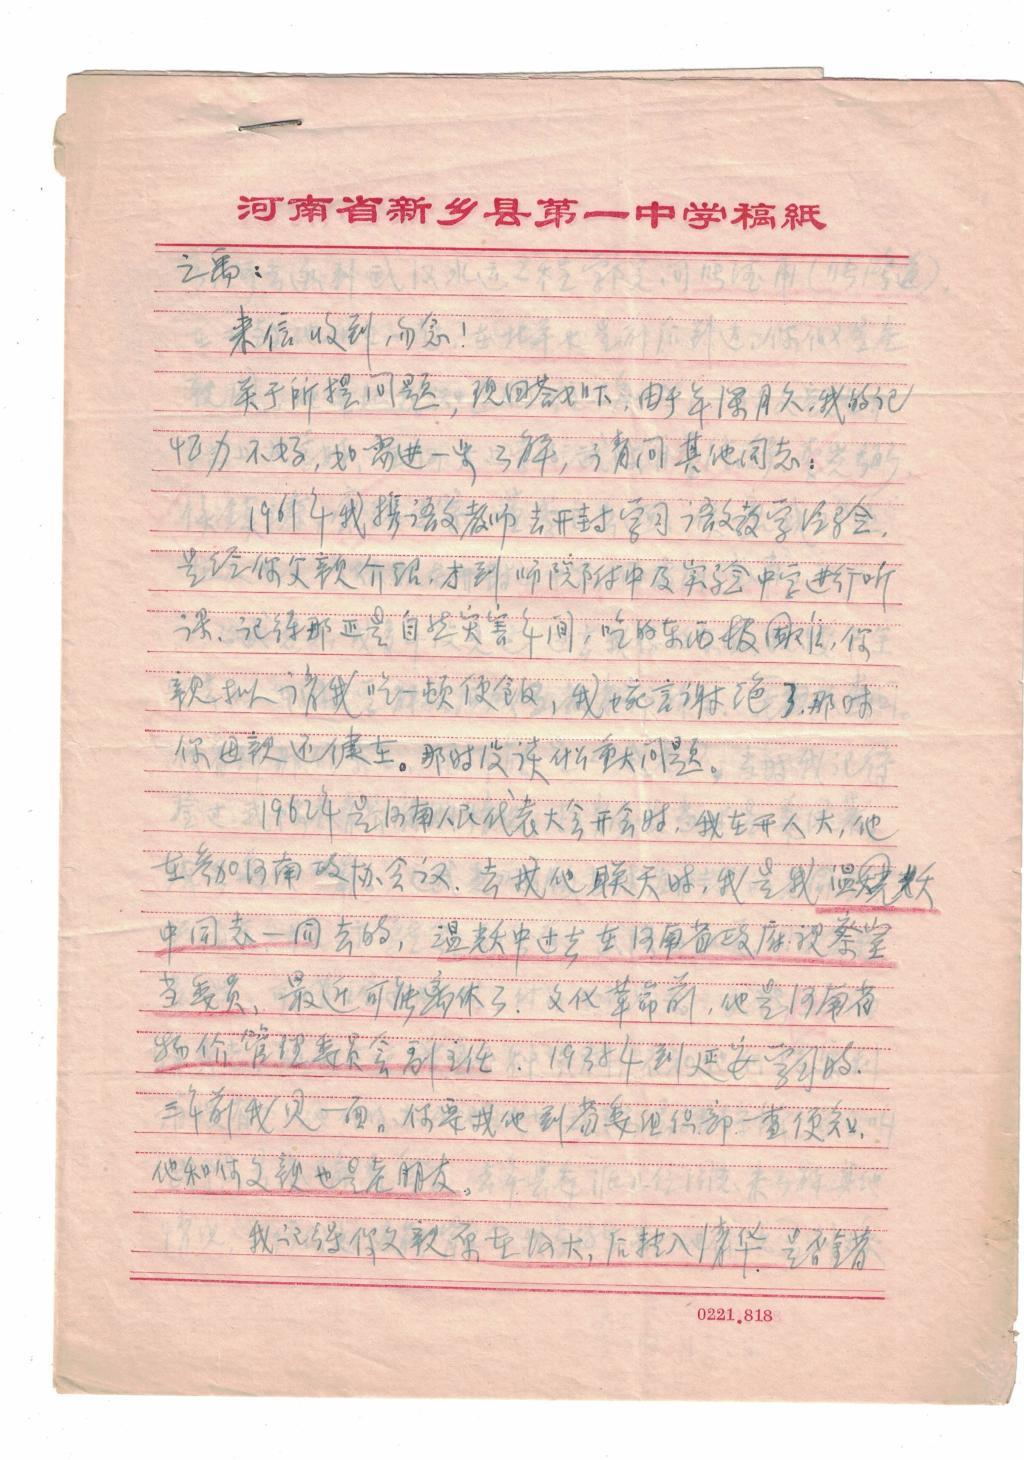 河南省新乡县第一中学稿紙
之禹：
来信收到，勿念！
关于所提问题，现回答如下，由于年深月久，我的记
忆力不好，如需进一步了解，可请问其他同志：
1961年我携语文教师去开封学习语文教学经验，
是经你父亲介绍，才到师院附中及实验中学进行听
课，记得那正是自然灾害年间，吃的东西极困难，你
亲拟请我吃一顿便飯，我婉言谢绝了，那时
你母亲还健在。那时没谈什么重大问题。
1962年是河南人民代表大会开会时，我在开人大，他
在参加河南政协会议，去找他联天时，我是我温
中同志一同去的，温中过去在河南省政府视察室
当委员，最近可能离休了，文化革命前，他是河南省
物价管理委员会副主任，1938年到延安学习的，
三年前我见一面。你要找他到省委组织部一查便知，
他和你父亲也是老朋友。
我记得你父亲原在河大，后转入清华，是否
0221.818